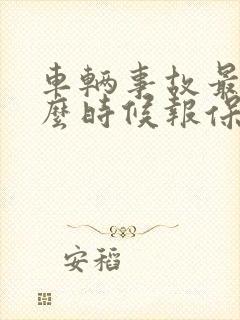 車輛事故最
麼時候報保
安稻